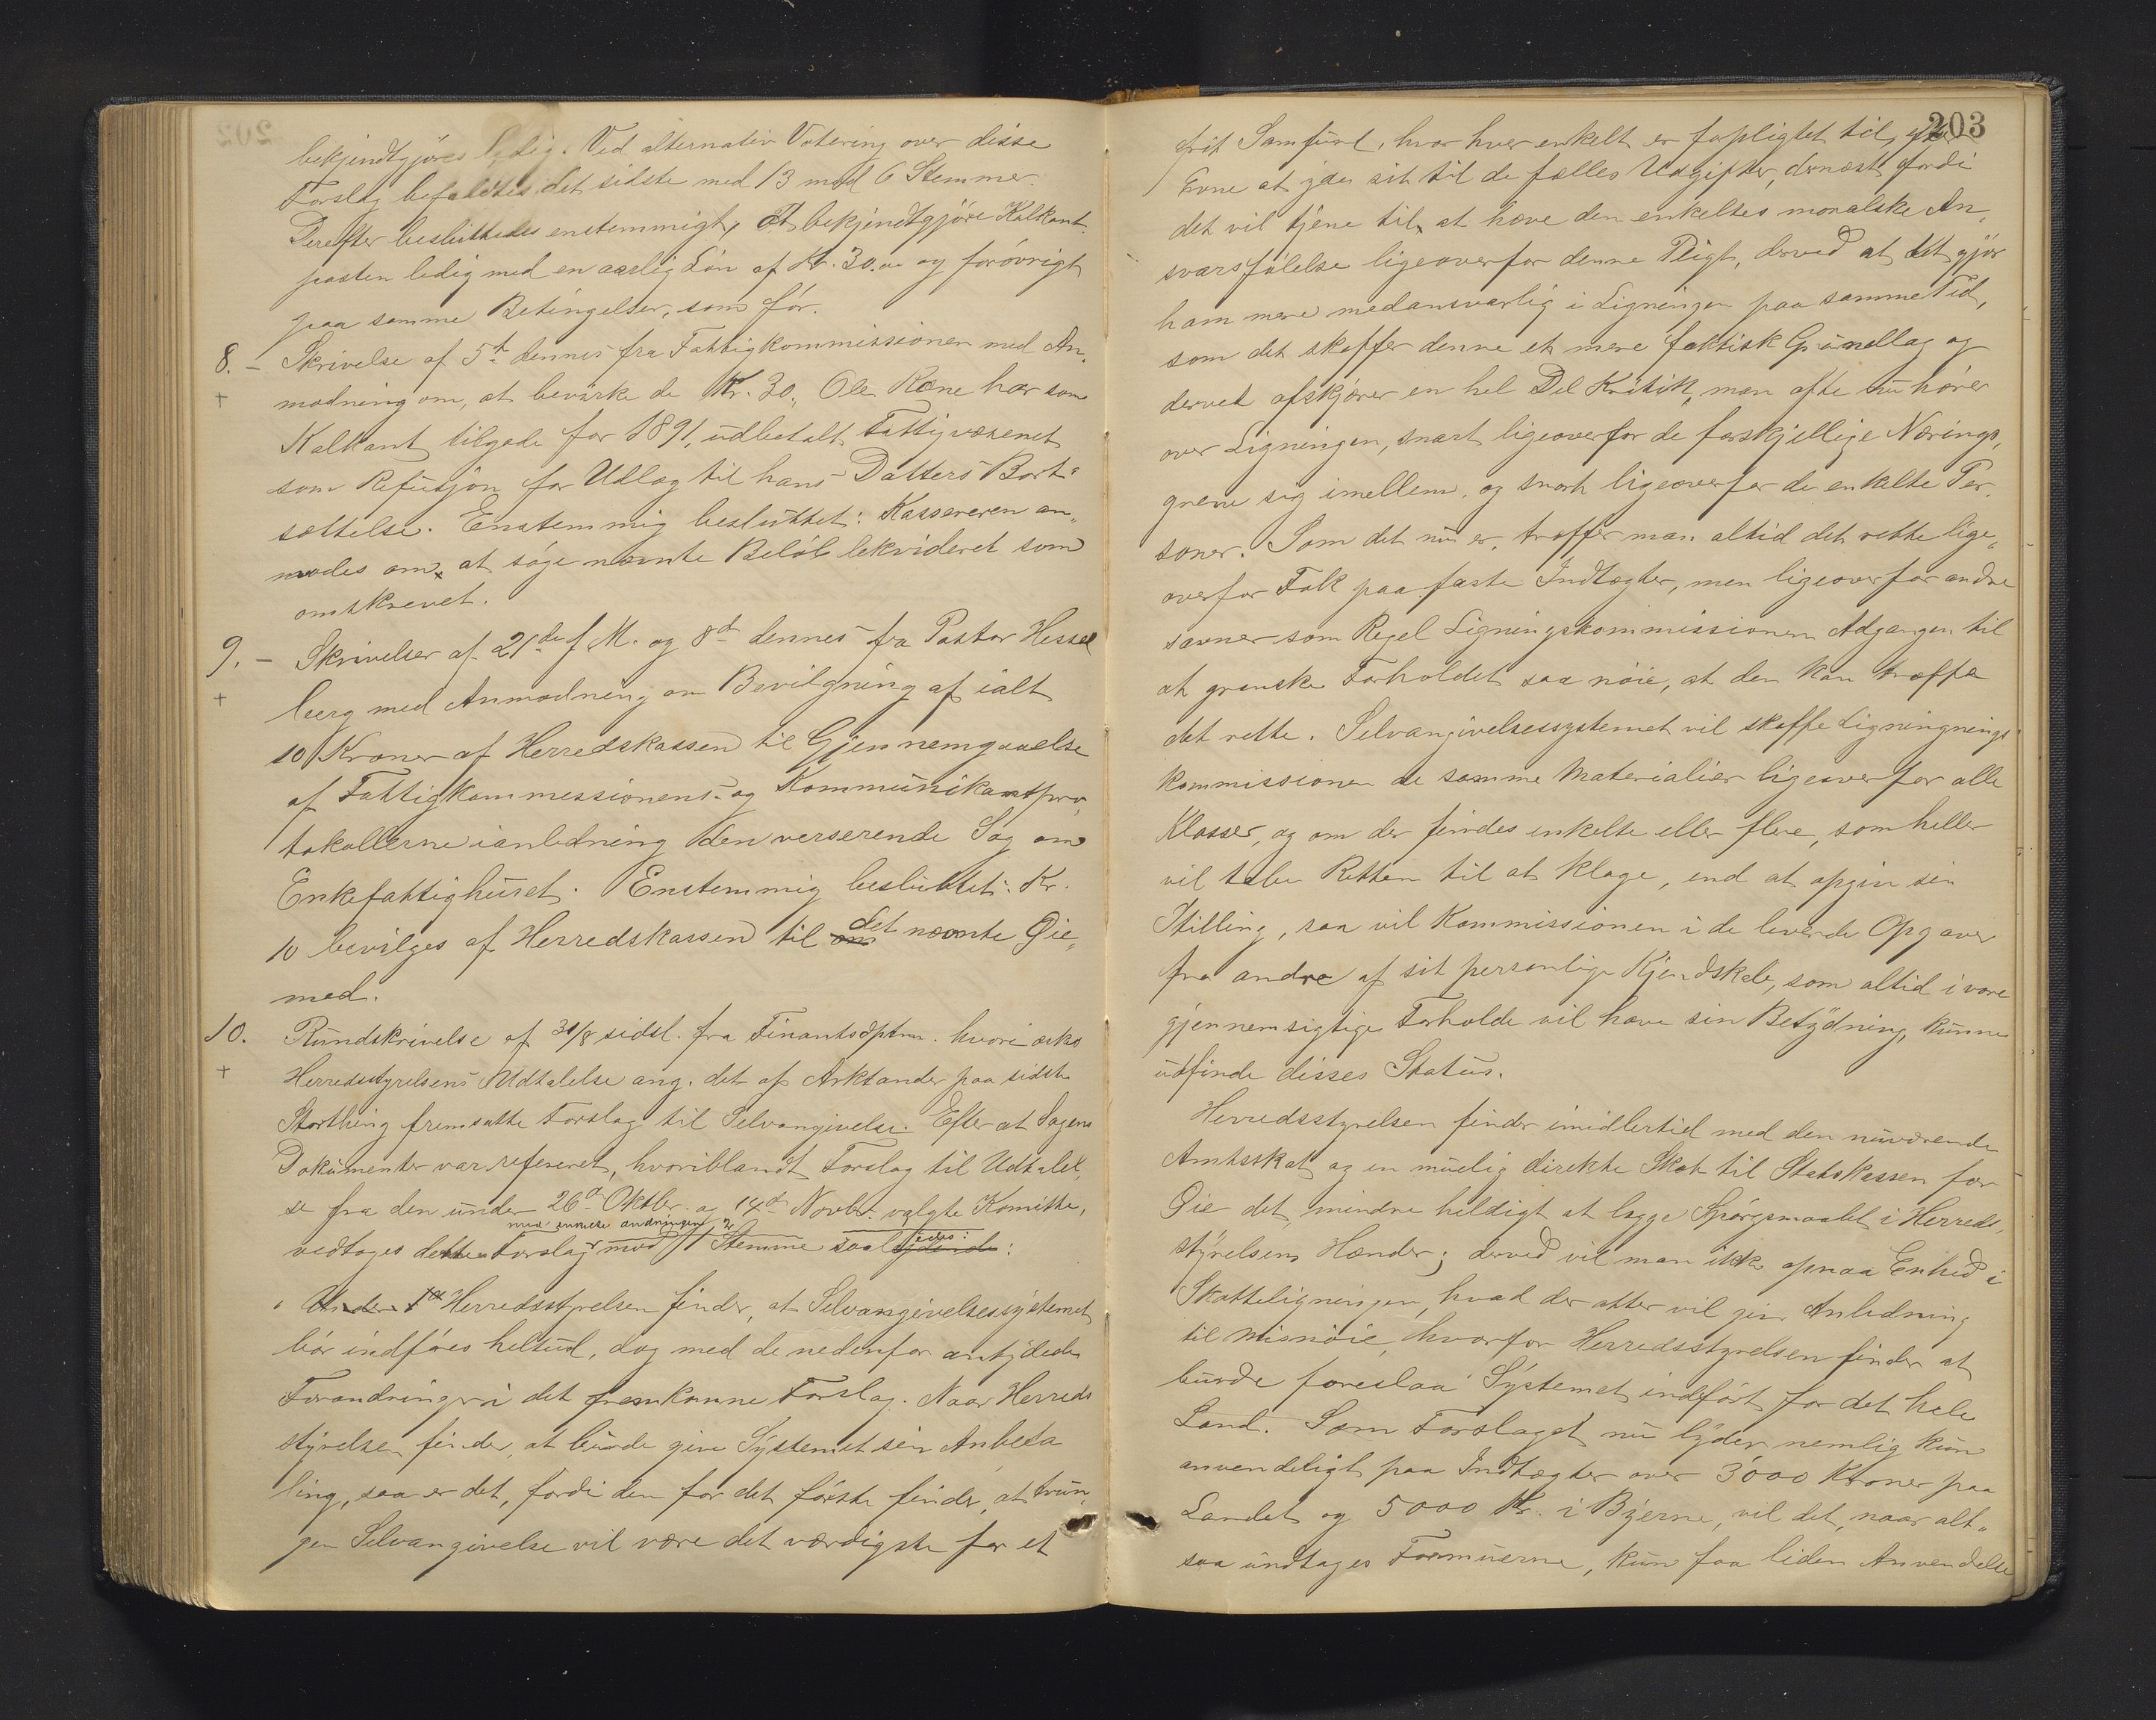 bekjendtgjöres ledig. Ved alternativ Votering over disse
Forslag befaldtes det sidste med 13 mod 6 Stemmer.
Derefter besluttedes enstemmigt, at bekjendtgjöre Kalkant-
posten ledig med en aarlig Lön af Kr. 30.00 og forövrigt
paa samme Betingelser, som för.
8. - Skrivelse af 5te dennes fra Fattigkommissionen med An-
+ modning om, at bevirke de Kr. 30,, Ole Rane har som
Kalkant tilgode for 1891, udbetalt Fattigvæsenet
som Refusjon for Udlæg til hans Datters Bort-
sættelse. Enstemmig besluttet: Kassereren an-
modes om at söge nævnte Belöb lekvideret som
omskrevet.
9. - Skrivelser af 21de f. M. og 8de dennes fra Pastor Hessel
+ berg med Anmodning om Bevilgning af ialt
10 Kroner af Herredskassen til Gjennemgaaelse
af Fattigkommessionens- og Kommunikantpro-
tokollerne ianledning den verserende Sag om
Enkefattighuset. Enstemmig besluttet: Kr.
10 bevilges af Herredskassen til det nævnte Øie-
med.
10. Rundskrivelse af 31/8 sidstl. fra Finantsdptm. hvori æskes
+ Herredsstyrelsens Udtalelse ang. det af Arktander paa sidste
Storthing fremsatte Forslag til Selvangivelse. Efter at Sagens
Dokumenter var refereret, hvoriblandt Forslag til Udtalel-
se fra den under 26de Oktbr. og 14de Novbr. valgte Komitte,
med enkelte ændringer
vedtoges dette Forslag mod 1 Stemme saaledes:
" Herredsstyrelsen finder, at Selvangivelsessystemet
bör indföres heltud, dog med de nedenfor antydede
Forandringer i det fremkomne Forslag. Naar Herreds
styrelsen finder, at burde give Systemet sin Anbefa
ling, saa er det, fordi den for det förste finder, at tvun-
gen Selvangivelse vil være det værdigste for et
203
frit Samfund, hvor hver enkelt er forpligtet til, efter
Evne at yde sit til de fælles Udgifter, dernæst fordi
det vil tjene til, at hæve den enkeltes moralske An-
svarsfölelse ligeoverfor denne Pligt, derved at det gjör
ham mere medansvarlig i Ligningen paa samme Tid,
som det skaffer denne et mere faktisk Grundlag og
derved afskjærer en hel Del Kritik, man ofte nu hörer
over Ligningen, snart ligeoverfor de forskjellige Nærings-
grene sig imellem, og snart ligeoverfor de enkelte Per-
soner. Som det nu er, træffer man altid det rette lige-
overfor Folk paa faste Indtægter, men ligeoverfor andre
savner som Regel Ligningskommissionen Adgangen til
at granske Forholdet saa nöie, at den kan træffe
det rette. Selvangivelsessystemet vil skaffe Ligningnings-
kommissionen de samme Materialier ligeoverfor alle
Klasser, og om der findes enkelte eller flere, som heller
vil tabe Retten til at klage, end at opgive sin
Stilling, saa vil Kommissionen i de leverede Opgaver
fra andre af sit personlige Kjendskab, som altid i vore
gjennemsigtige Forholde vil have sin Betydning, kunne
udfinde disses Status.
Herredsstyrelsen finder imidlertid med den nuværende
Amtsskat og en muelig direkte Skat til Statskassen for
Øie det mindre heldigt at lægge Spörgsmaalet i Herreds-
styrelsens Hænder; derved vil man ikke opnaa Enhed i
Skatteligningen, hvad der atter vil give Anledning
til Misnöie, hvorfor Herredsstyrelsen finder at
burde foreslaa Systemet indfört for det hele
Land. Som Forslaget nu lyder nemlig kun
anvendeligt paa Indtægter over 3000 Kroner paa
Landet og 5000 Kr. i Byerne, vil det, naar alt-
saa undtages Formuerne, kun faa liden Anvendelse